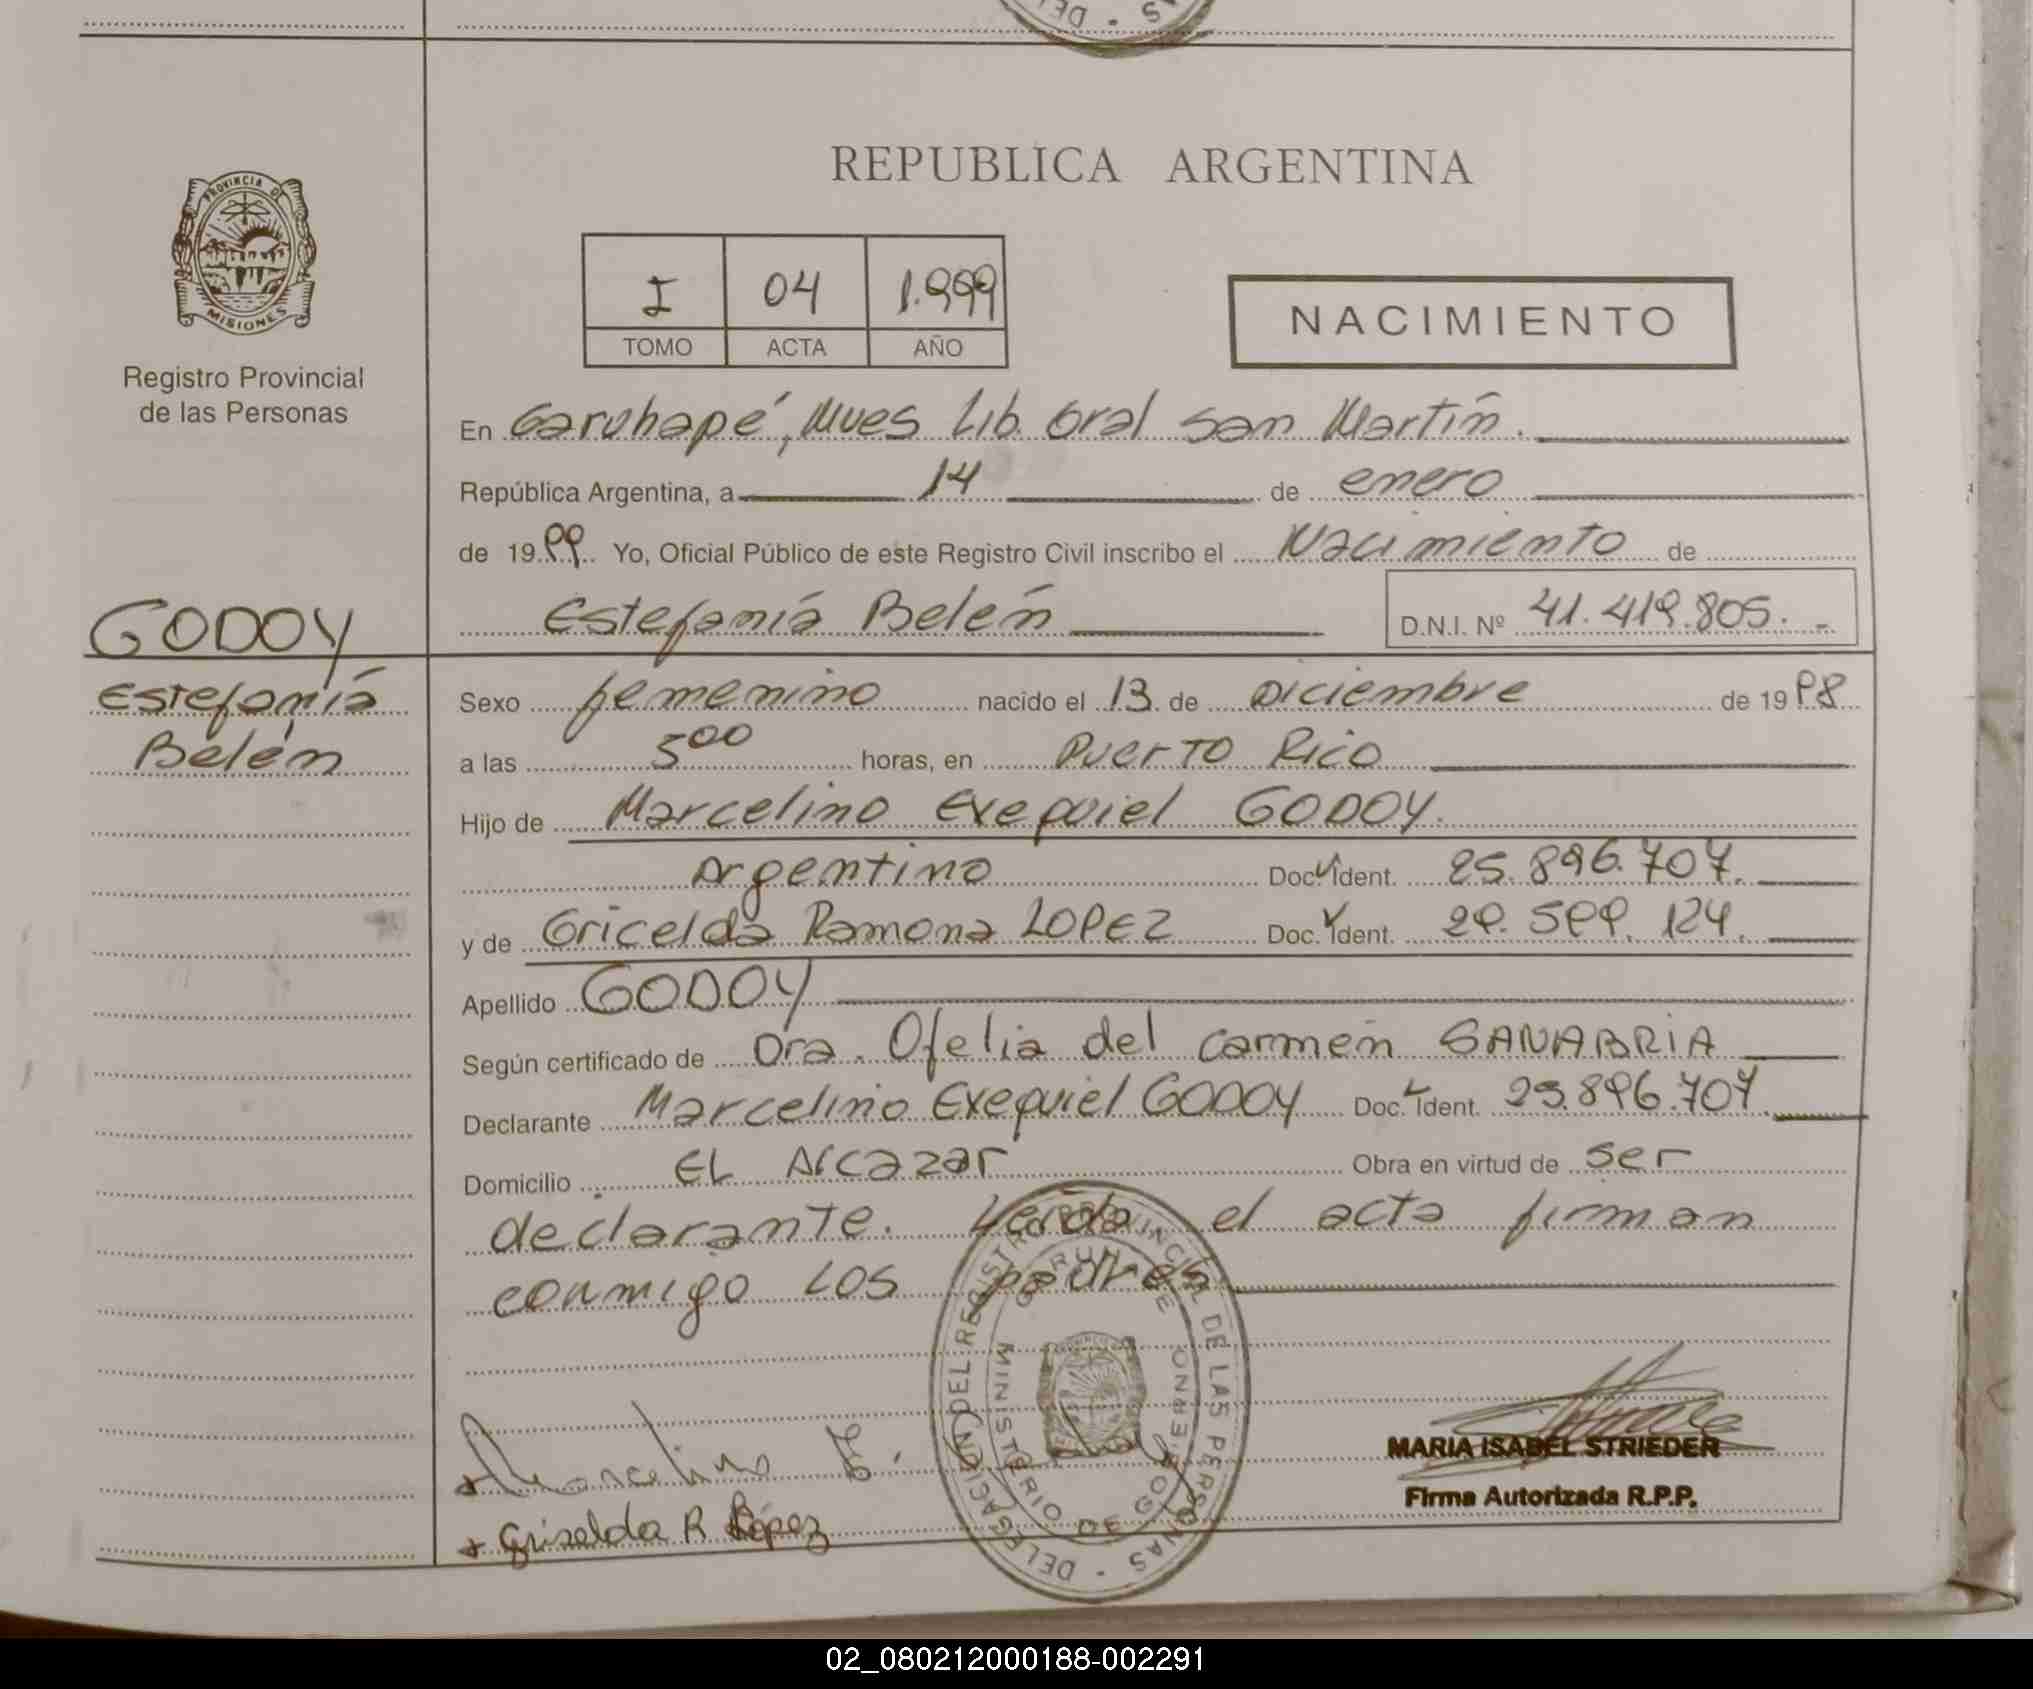 PROVINCIA DE
MISIONES
Registro Provincial
de las Personas
REPUBLICA ARGENTINA
I 04 1.999
TOMO ACTA AÑO
NACIMIENTO
En Garuhapé, Mues Lib. Gral San Martín.
República Argentina, a 14 de enero
de 1999 Yo, Oficial Público de este Registro Civil inscribo el Nacimiento de
Estefanía Belén D.N.I. Nº 41.419.805.-
GODOY
Estefanía
Belén
Sexo femenino nacido el 13 de Diciembre de 1998
a las 5⁰⁰ horas, en Puerto Rico
Hijo de Marcelino Exequiel GODOY.
Argentino Doc. Ident. 25.896.707.
y de Gricelda Ramona LOPEZ Doc. Ident. 29.599.124.
Apellido GODOY
Según certificado de Dra. Ofelia del Carmen SANABRIA
Declarante Marcelino Exequiel GODOY Doc. Ident. 25.896.707.
Domicilio EL Alcazar Obra en virtud de ser
declarante. Leída el acta firman
conmigo los padres
DELEGACION DEL REGISTRO PROVINCIAL DE LAS PERSONAS
MINISTERIO DE GOBIERNO
Marcelino E.
Griselda R López
MARIA ISABEL STRIEDER
Firma Autorizada R.P.P.
02_080212000188-002291